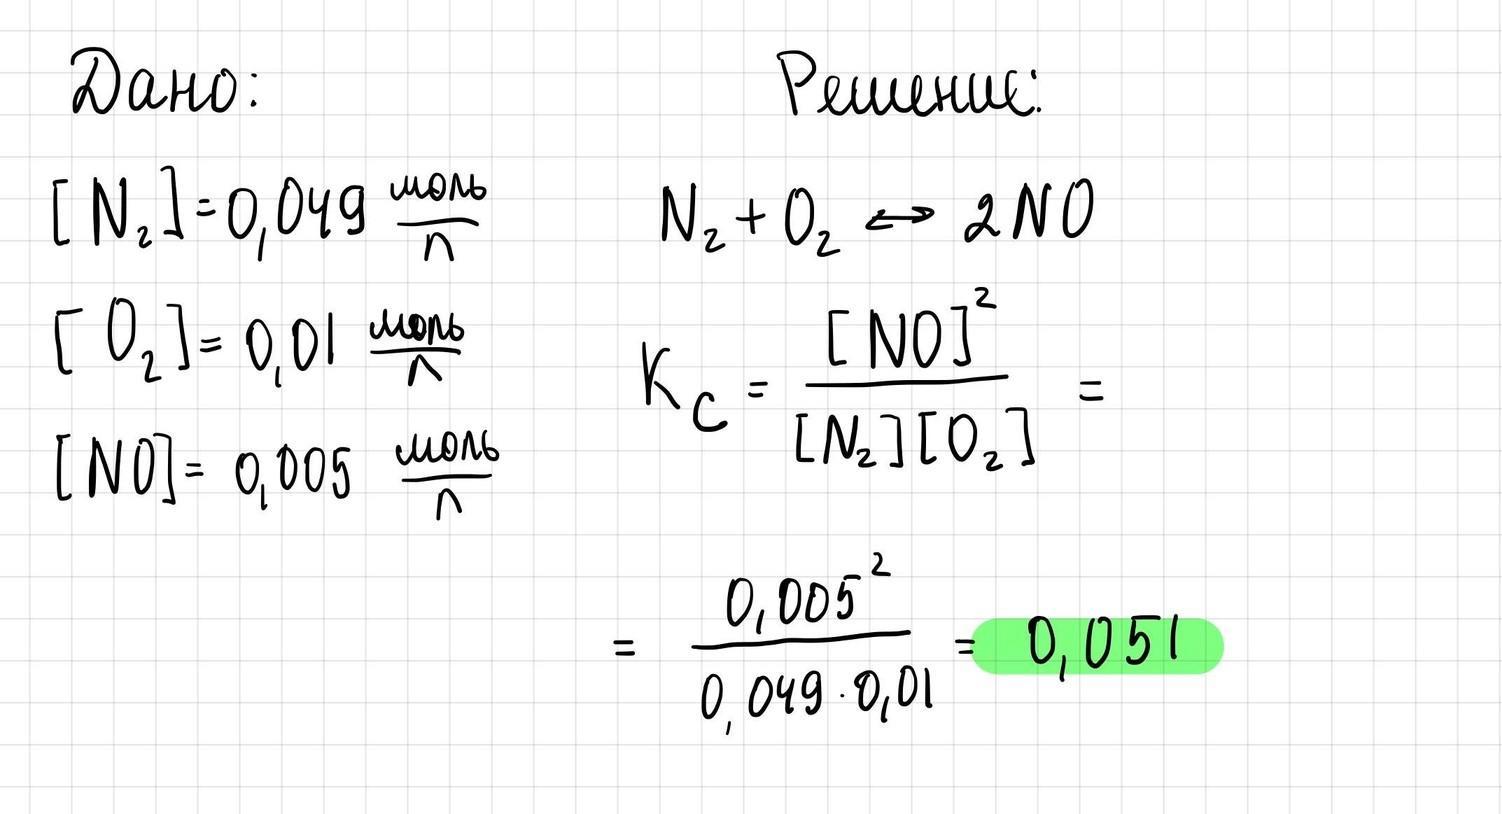 Дано:
[N₂]=0,049 моль/л
[O₂]=0,01 моль/л
[NO]=0,005 моль/л
Решение:
N₂+O₂ ↔ 2NO
K_C = [NO]² / [N₂][O₂] =
= 0,005² / 0,049·0,01 = 0,051